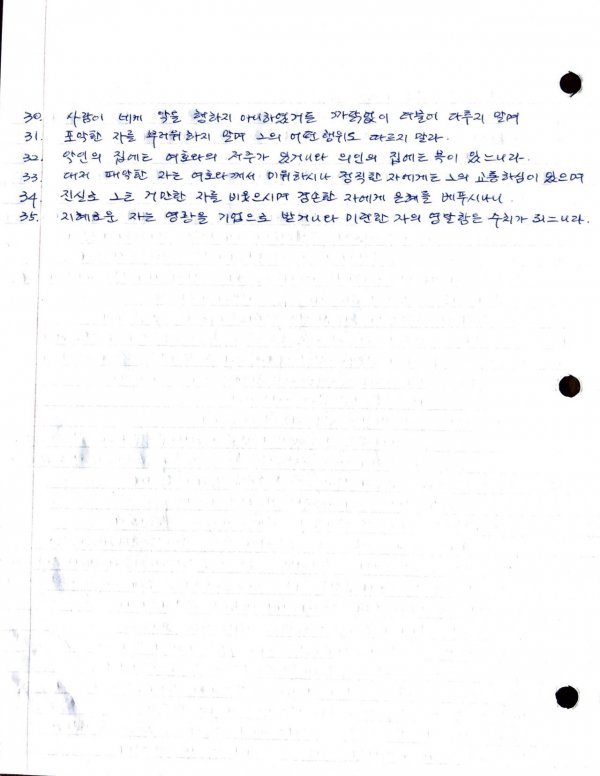 30. 사람이 네게 악을 행하지 아니하였거든 까닭없이 더불어 다투지 말며
31. 포악한 자를 부러워하지 말며 그의 어떤 행위도 따르지 말라.
32. 악인의 집에는 여호와의 저주가 있거니와 의인의 집에는 복이 있느니라.
33. 대저 패악한 자는 여호와께서 미워하시나 정직한 자에게는 그의 교통하심이 있으며
34. 진실로 그는 거만한 자를 비웃으시며 겸손한 자에게 은혜를 베푸시나니
35. 지혜로운 자는 영광을 기업으로 받거니와 미련한 자의 영달함은 수치가 되느니라.